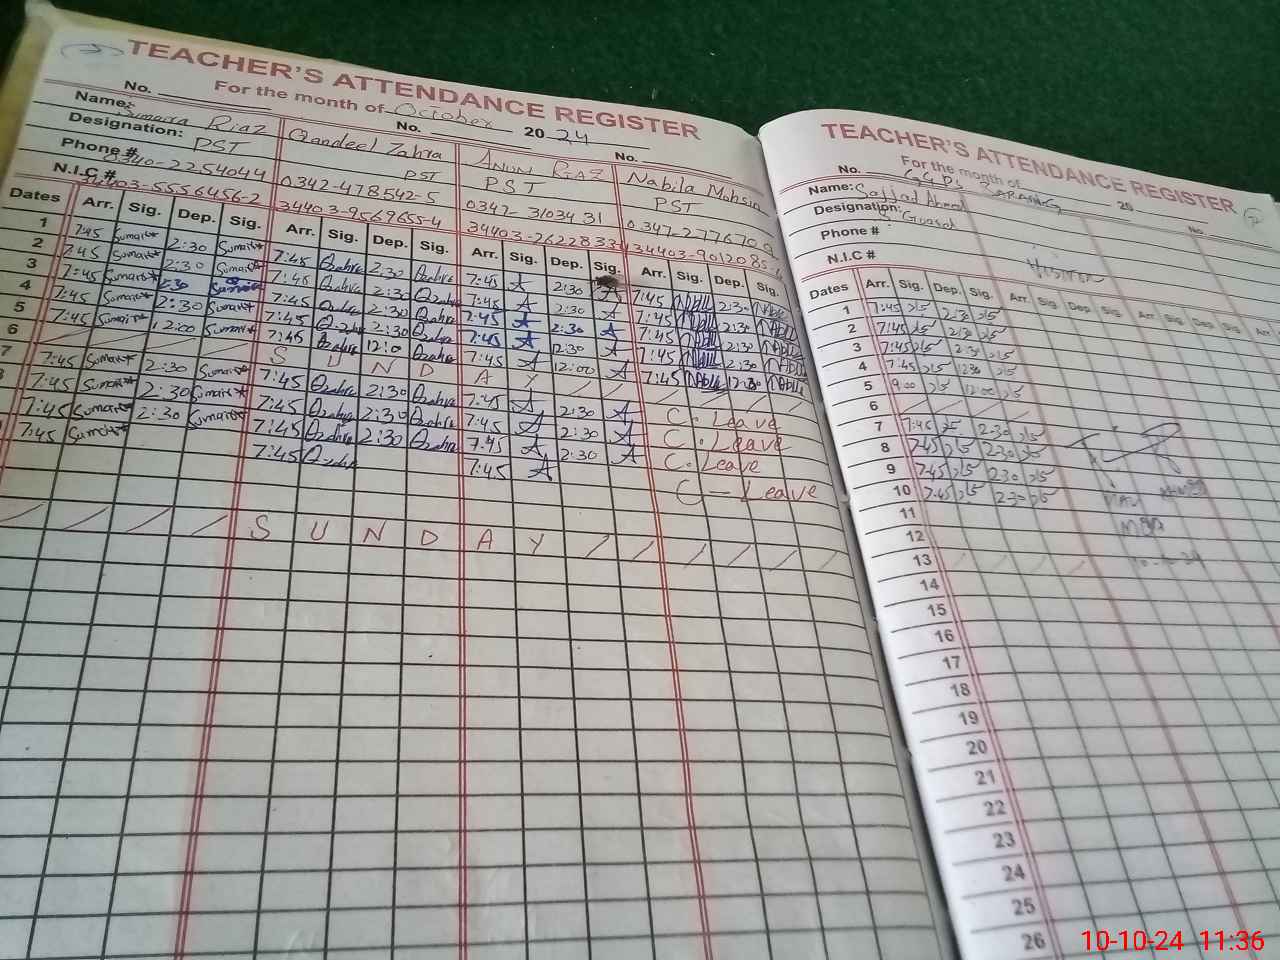 TEACHER'S ATTENDANCE REGISTER
For the month of October 2024
No. No. No.
Name: Sumaira Riaz Qandeel Zahra Nabila Mohsin
Designation: PST PST PST PST
Phone # 0340-2254044 0342-478542-5 0347-3103431
N.I.C # 34403-5556456-2 34403-9569655-4
Dates Arr. Sig. Dep. Sig. Arr. Sig. Dep. Sig. Arr. Sig. Dep. Sig. Arr. Sig. Dep. Sig.
1 7:45 Sumaira 2:30 Sumaira 7:45 Qzahra 2:30 Qzahra 7:45 A 2:30 A 7:45 Nabila 2:30 Nabila
2 7:45 Sumaira 2:30 Sumaira 7:45 Qzahra 2:30 Qzahra 7:45 A 2:30 A 7:45 Nabila 2:30 Nabila
3 7:45 Sumaira 2:30 Sumaira 7:45 Qzahra 2:30 Qzahra 7:45 A 2:30 A 7:45 Nabila 2:30 Nabila
4 7:45 Sumaira 2:30 Sumaira 7:45 Qzahra 2:30 Qzahra 7:45 A 12:30 A 7:45 Nabila 2:30 Nabila
5 7:45 Sumaira 12:00 Sumaira 7:45 Qzahra 12:0 Qzahra 7:45 A 12:00 A 7:45 Nabila Nabila
6 S U N D A Y
7 7:45 Sumaira 2:30 Sumaira 7:45 Qzahra 2:30 Qzahra 7:45 A 2:30 A C. Leave
7:45 Sumaira 2:30 Sumaira 7:45 Qzahra 2:30 Qzahra 7:45 A 2:30 A C. Leave
7:45 Sumaira 2:30 Sumaira 7:45 Qzahra 2:30 Qzahra 7:45 A 2:30 A C. Leave
7:45 Sumaira 7:45 Qzahra 7:45 A C - Leave
S U N D A Y
TEACHER'S ATTENDANCE REGISTER
For the month of 20
No. No.
Name: Sajjad Ahmed
Designation:
Phone #
N.I.C #
Dates Arr. Sig. Dep. Sig. Arr. Sig. Dep. Sig. Arr.
1 7:45 2:30
2 7:45 2:30
3 7:45 2:30
4 7:45 1230
5 9:00 12:00
6
7 7:45 2:30
8 7:45 2:30
9 7:45 2:30
10 7:45 2:30
11
12
13
14
15
16
17
18
19
20
21
22
23
24
25
26
10-10-24 11:36